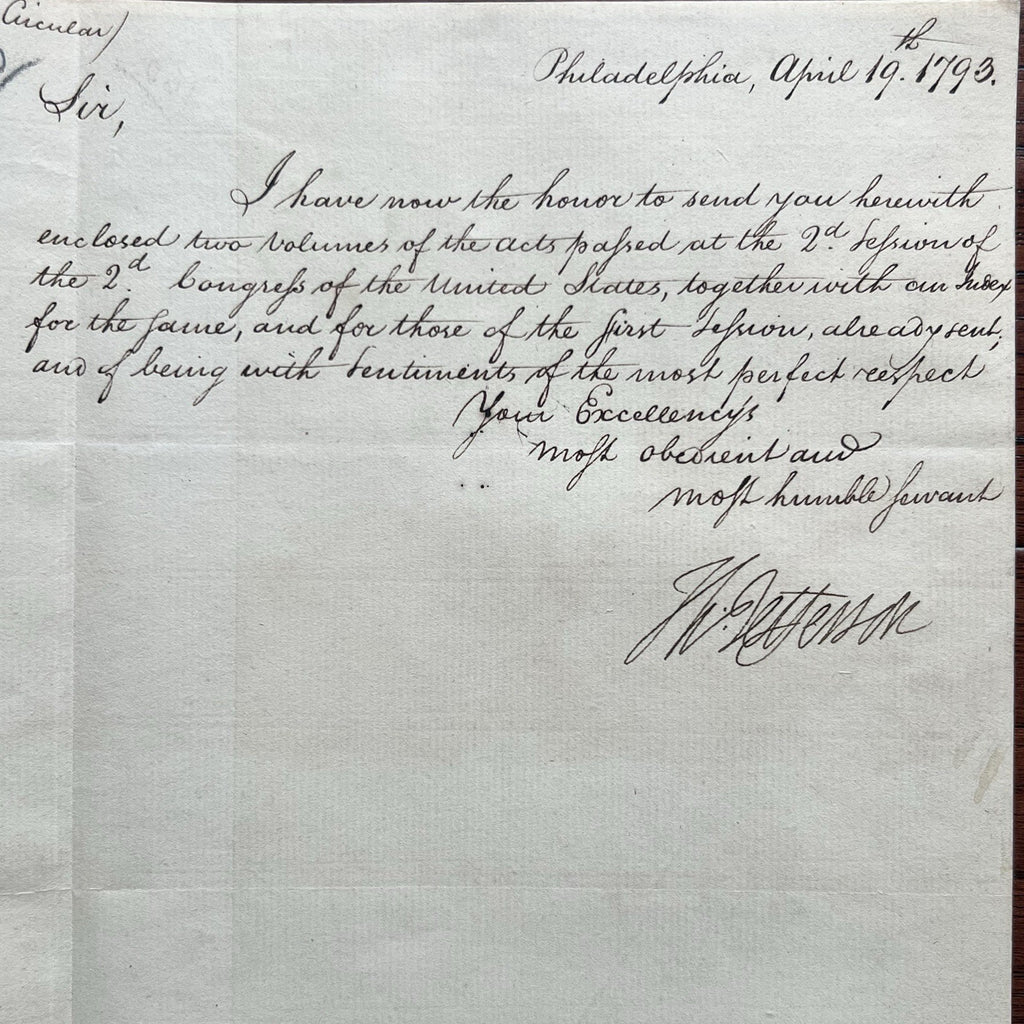 Circular)
Philadelphia, April 19th. 1793.
Sir,
I have now the honor to send you herewith
enclosed two Volumes of the acts paſsed at the 2d. Seſsion of
the 2d. Congreſs of the United States, together with an Index
for the ſame, and for those of the first Seſsion, already sent;
and of being with Sentiments of the most perfect respect
Your Excellency's
moſt obedient and
moſt humble ſervant
Th: Jefferson